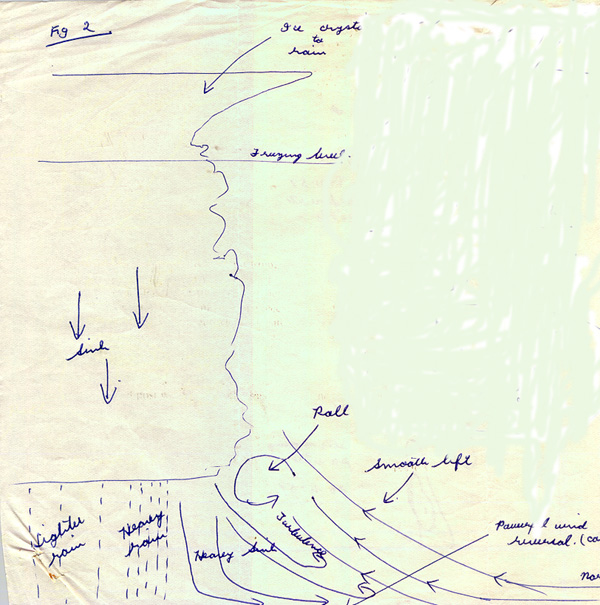 Fig 2
Ice cryst
to
rain
Freezing level.
Sink
Roll
Smooth lift
Lighter
rain
Heavy
rain
Heavy Sink
Turbulence
wind
reversal. (co